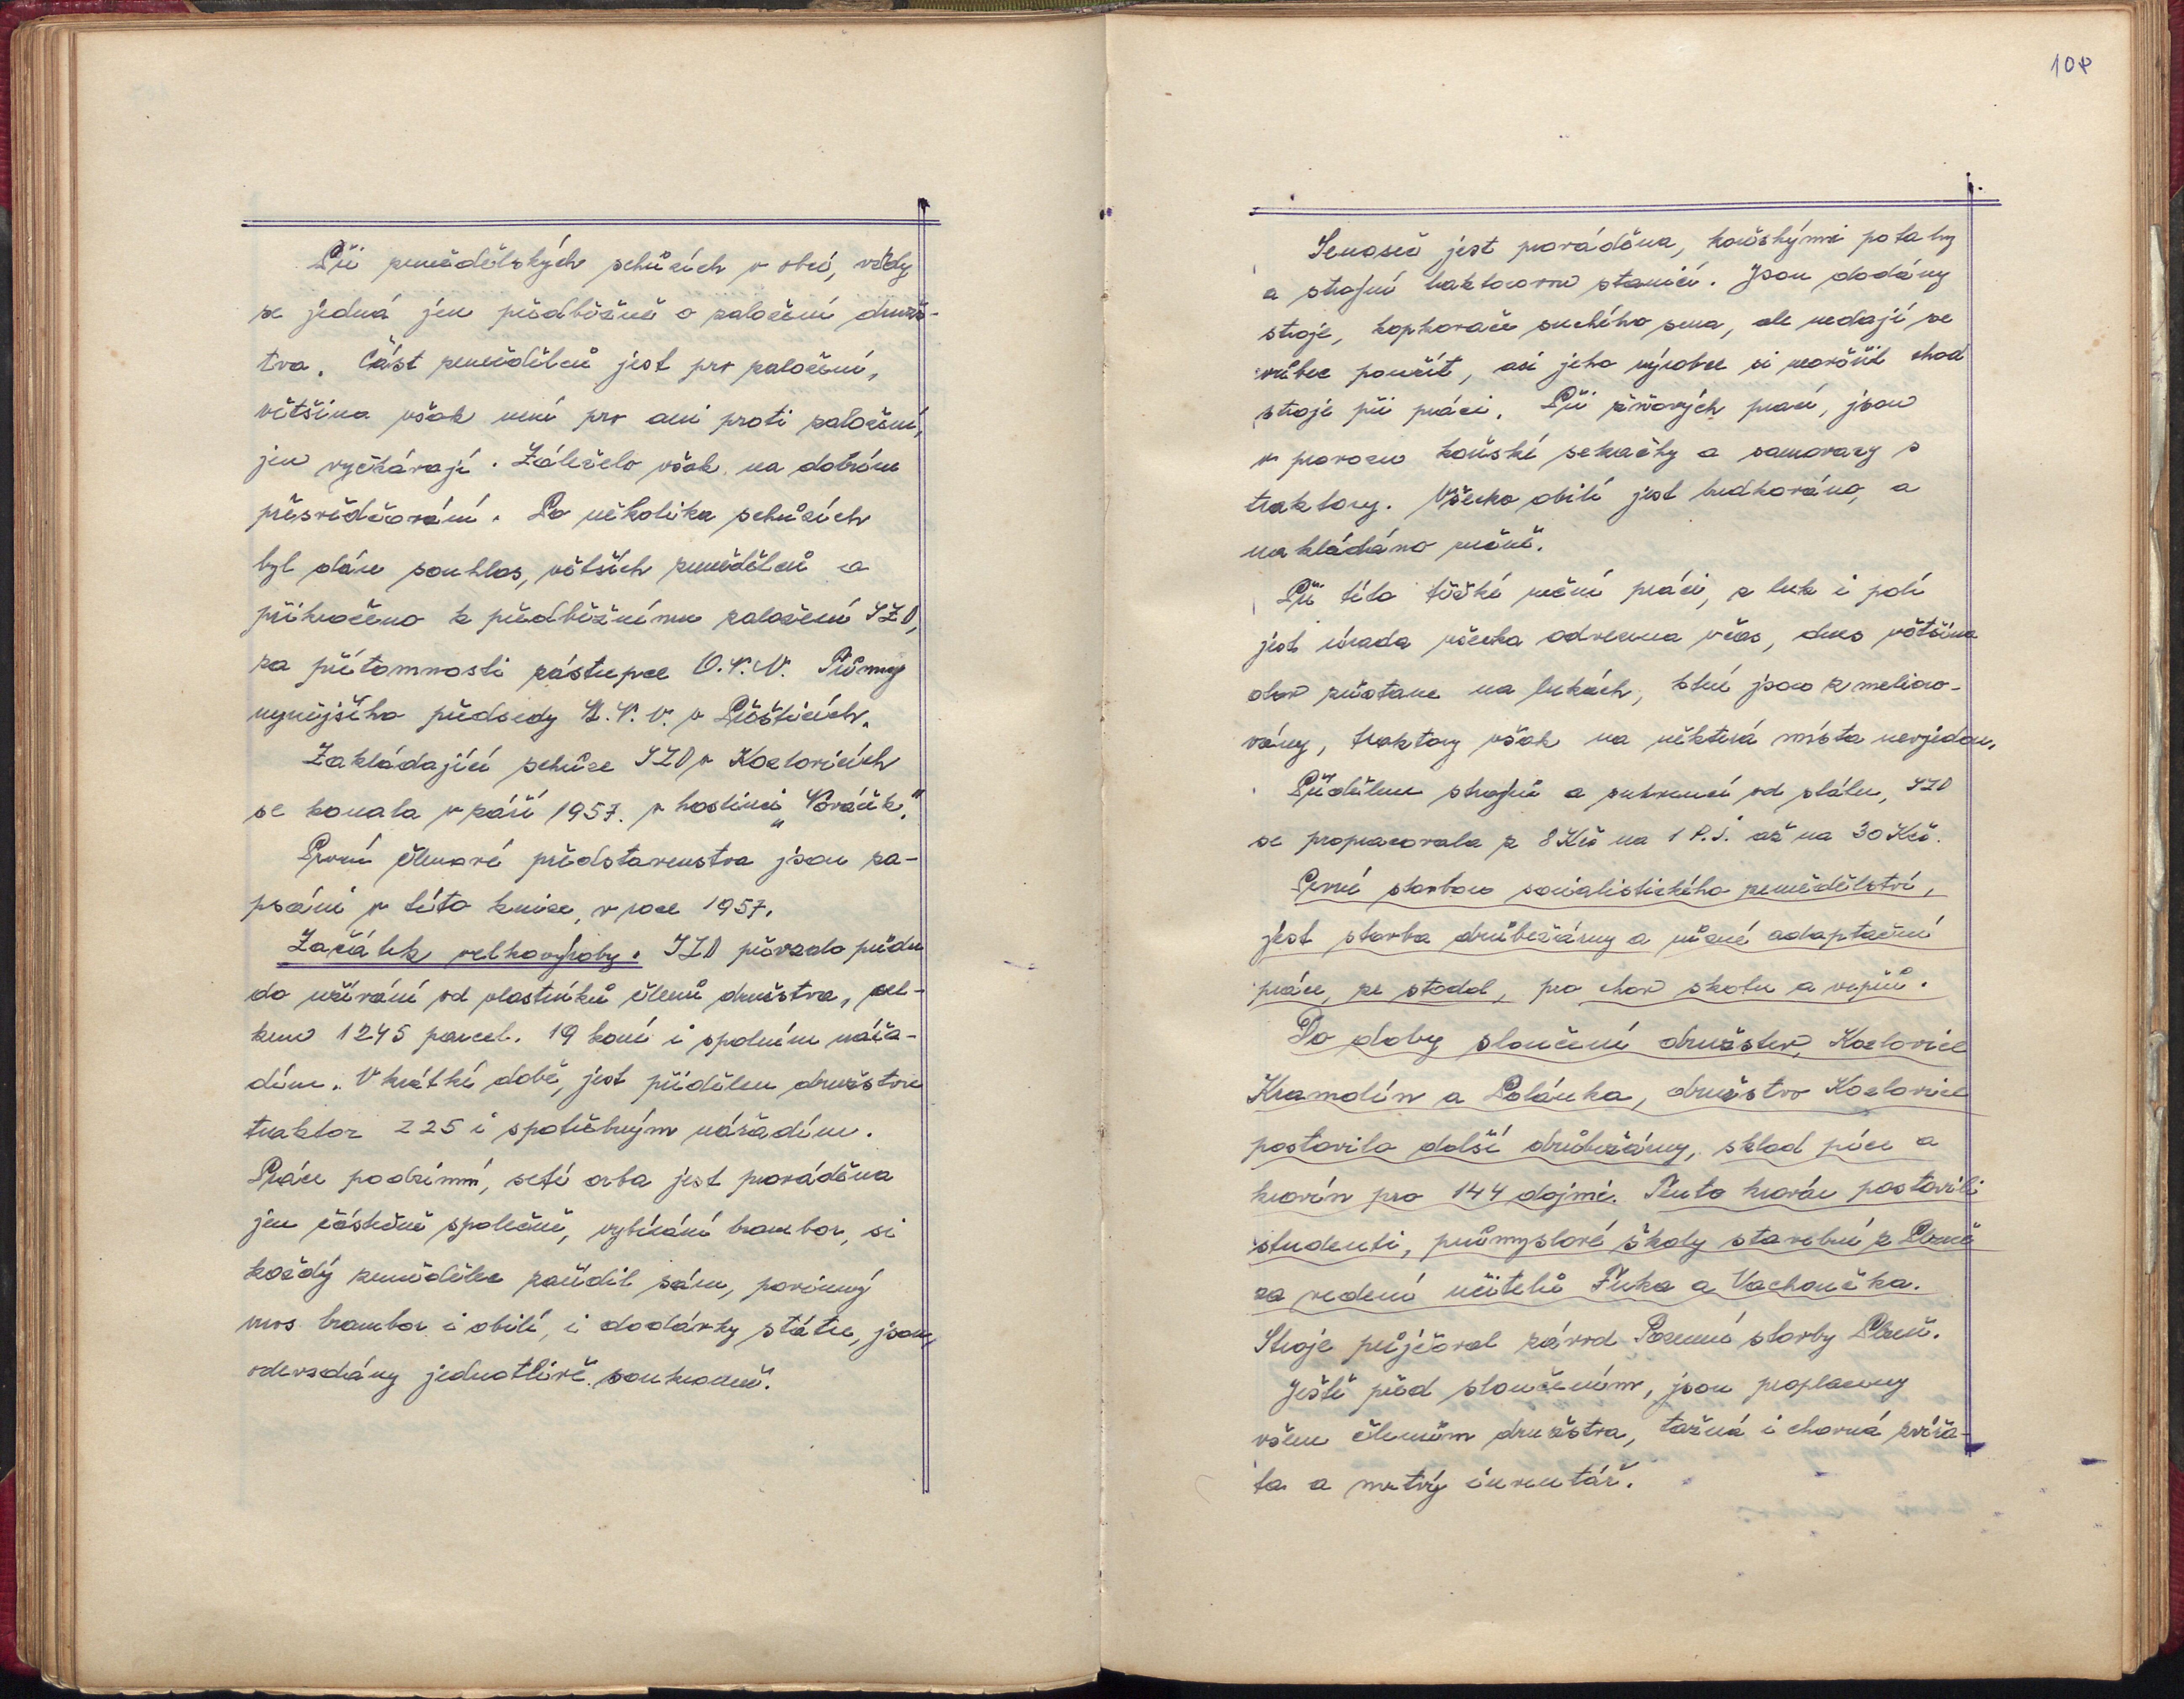 Při zemědělských schůzích v obci, vždy
se jedná jen předběžně o založení druž-
tva. Část zemědělců jest pro založení,
většina však není pro ani proti založení,
jen vyčkávají. Záleželo však na dobrém
přesvědčování. Po několika schůzích
byl dán souhlas, větších zemědělců a
přikročeno k předběžnému založení JZD,
za přítomnosti zástupce O.N.V. Tůmy
nynějšího předsedy M.N.V. v Přešticích.
Zakládající schůze JZD v Kozlovicích
se konala v září 1957. v hostinci "Voráček."
První členové představenstva jsou za-
psáni v této knize, v roce 1957.
Začátek velkovýroby. JZD převzalo půdu
do užívání od vlastníků členů družstva, cel-
kem 1245 parcel. 19 koní i spolním nářa-
dím. V krátké době, jest přidělen družstvu
traktor Z25 i spotřebným nářadím.
Práce podzimní, setí orba jest prováděna
jen částečně společně, vybírání brambor, si
každý zemědělec zařídil sám, povinný
vnos brambor i obilí, i dodávky státu, jsou,
odevzdány jednotlivě soukromě.
108
Senoseč jest prováděna, koňskými potahy
a strojní traktorovou stanicí. Jsou dodány
stroje, kopkovače suchého sena, ale nedají se
vůbec použít, asi jeho výrobce si neověřil chod
stroje při práci. Při žňových prací, jsou
v provozu koňské sekačky a samovazy s
traktory. Všecko obilí jest budkováno, a
nakládáno ručně.
Při této těžké ruční práci, z luk i polí
jest úroda všecka odvezena včas, dnes většina
otav zůstane na lukách, které jsou zmelioro-
vány, traktory však na některá místa nevjedou.
Přídělem strojů a subvencí od státu, JZD
se propracovala z 8 Kčs na 1 P.J. až na 30 Kčs.
První stavbou socialistického zemědělství,
jest stavba drůbežárny a různé adaptační
práce, ze stodol, pro chov skotu a vepřů.
Do doby sloučení družstev, Kozlovice
Kramolín a Polánka, družstvo Kozlovice
postavilo další drůbežárny, sklad píce a
kravín pro 144 dojnic. Tento kravín postavili
studenti, průmyslové školy stavební z Plzně
za vedení učitelů Fuka a Vachouška.
Stroje půjčoval závod Pozemní stavby Plzeň.
Ještě před sloučením, jsou proplaceny
všem členům družstva, tažná i chovná zvířa-
ta a mrtvý inventář.